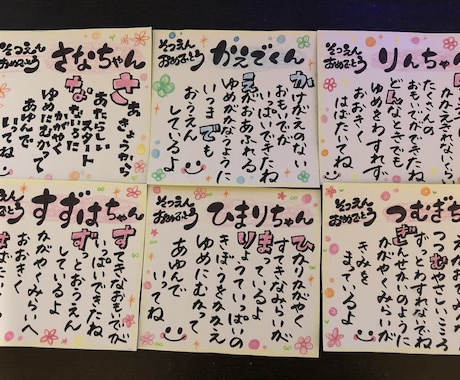 そつえん
おめでとう
さなちゃん
さあ きょうから
あたらしい
スタート
かがやく
ゆめにむかって
あゆんで
いってね
そつえん
おめでとう
かえでくん
かけがえのない
おもいで
いっぱいできたね
えがおあふれる
ゆめがかなうように
いつまでも
おうえん
しているよ
そつえん
おめでとう
りんちゃん
かかえきれない
たくさんの
どんなときでも
ゆめをわすれず
おおきく
はばたいてね
そつえん
おめでとう
すずはちゃん
すてきなおもいでが
いっぱいできたね
ずっとおうえん
しているよ
かがやくみらいへ
おおきく
そつえん
おめでとう
ひまりちゃん
ひかりかがやく
すてきなみらいが
まっているよ
りょうていっぱいの
きぼうをかかえ
ゆめにむかって
あゆんで
いってね
そつえん
おめでとう
つむぎちゃん
つつむやさしいこころ
ずっとわすれないでね
ぎんせかいのように
かがやくみらいが
きみを
まっているよ